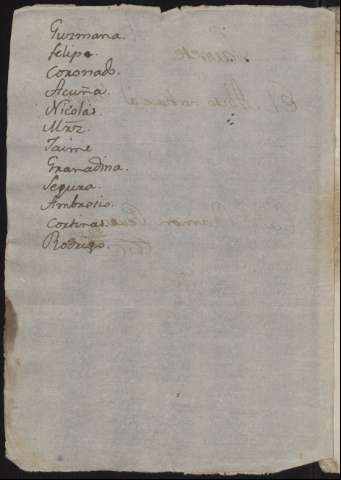 Guzmana.
Felipe.
Coronado.
Acuña.
Nicolás.
Mrz.
Jaime
Granadina.
Segura.
Ambrosio.
Cortinas.
Rodrigo.